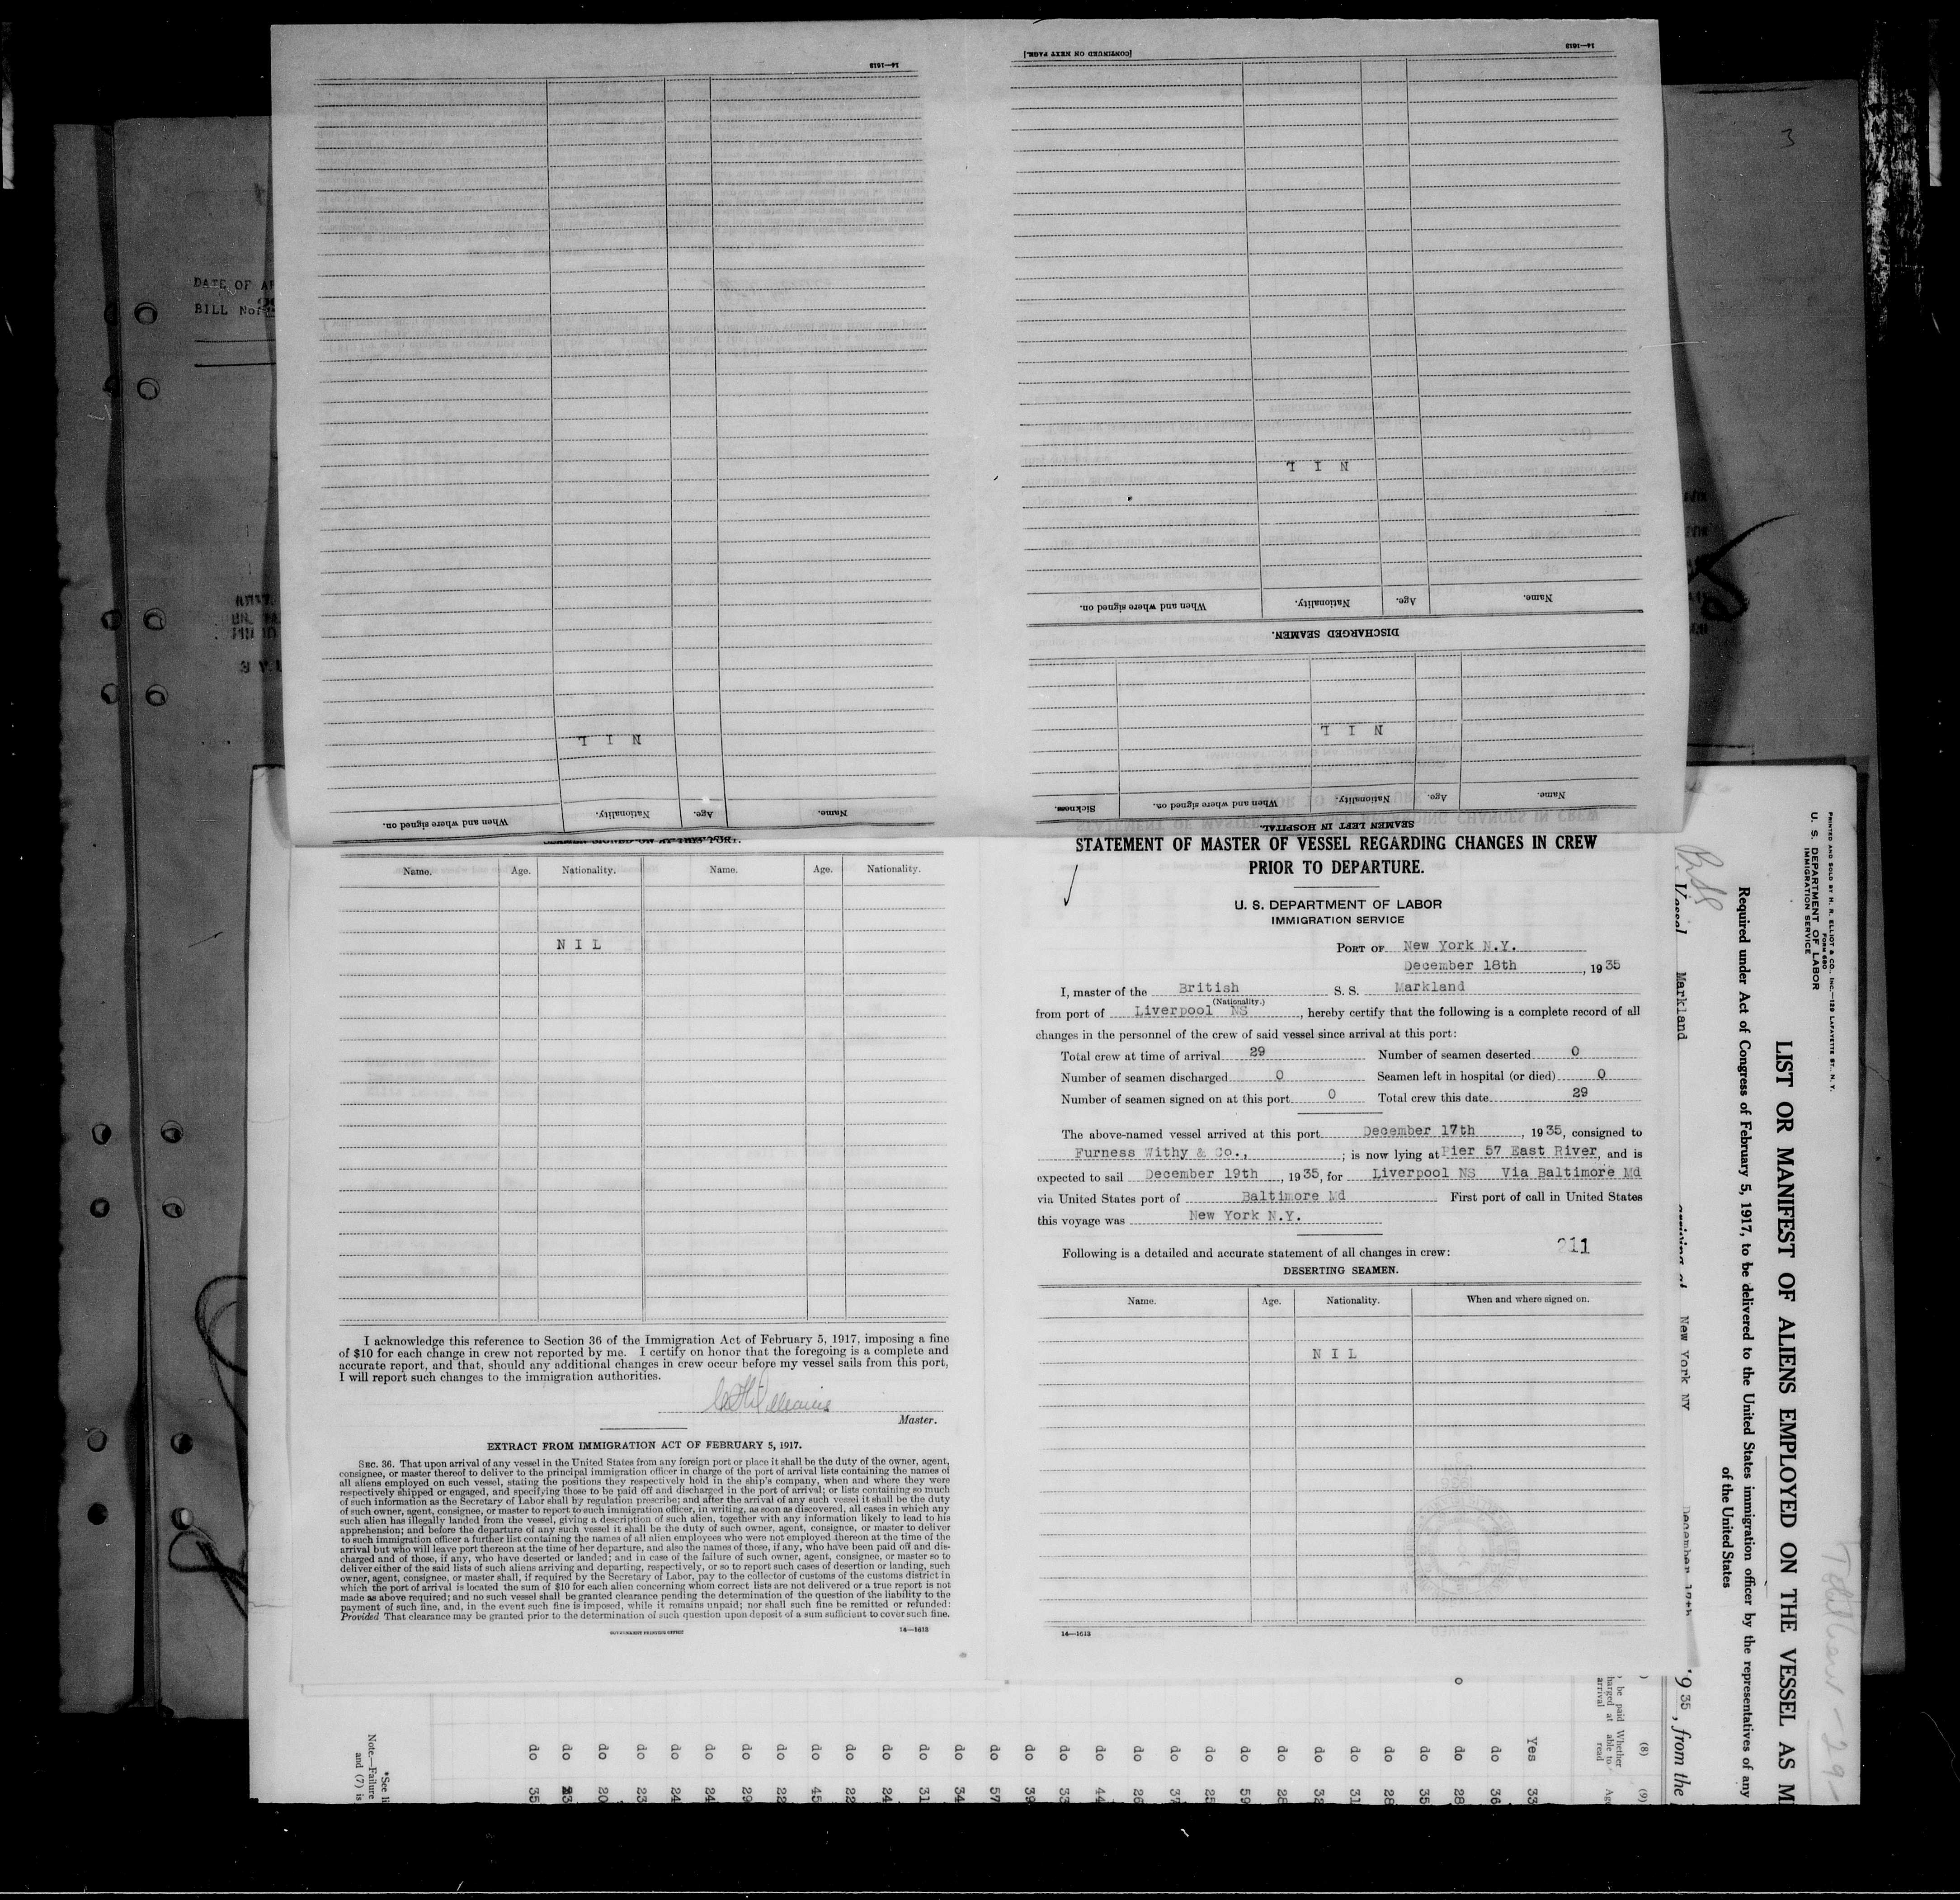 STATEMENT OF MASTER OF VESSEL REGARDING CHANGES IN CREW
PRIOR TO DEPARTURE.
U. S. DEPARTMENT OF LABOR
IMMIGRATION SERVICE
PORT OF New York N.Y.
December 18th, 1935
I, master of the British S. S. Markland
(Nationality.)
from port of Liverpool NS, hereby certify that the following is a complete record of all
changes in the personnel of the crew of said vessel since arrival at this port:
Total crew at time of arrival 29 Number of seamen deserted 0
Number of seamen discharged 0 Seamen left in hospital (or died) 0
Number of seamen signed on at this port 0 Total crew this date 29
The above-named vessel arrived at this port December 17th, 1935, consigned to
Furness Withy & Co., ; is now lying at Pier 57 East River, and is
expected to sail December 19th, 1935, for Liverpool NS Via Baltimore Md
via United States port of Baltimore Md First port of call in United States
this voyage was New York N.Y.
Following is a detailed and accurate statement of all changes in crew: 211
DESERTING SEAMEN.
Name. Age. Nationality. When and where signed on.
N I L
14—1613
SEAMEN SIGNED ON AT THIS PORT.
Name. Age. Nationality. Name. Age. Nationality.
N I L
I acknowledge this reference to Section 36 of the Immigration Act of February 5, 1917, imposing a fine
of $10 for each change in crew not reported by me. I certify on honor that the foregoing is a complete and
accurate report, and that, should any additional changes in crew occur before my vessel sails from this port,
I will report such changes to the immigration authorities.
Williams
Master.
EXTRACT FROM IMMIGRATION ACT OF FEBRUARY 5, 1917.
SEC. 36. That upon arrival of any vessel in the United States from any foreign port or place it shall be the duty of the owner, agent,
consignee, or master thereof to deliver to the principal immigration officer in charge of the port of arrival lists containing the names of
all aliens employed on such vessel, stating the positions they respectively hold in the ship's company, when and where they were
respectively shipped or engaged, and specifying those to be paid off and discharged in the port of arrival; or lists containing so much
of such information as the Secretary of Labor shall by regulation prescribe; and after the arrival of any such vessel it shall be the duty
of such owner, agent, consignee, or master to report to such immigration officer, in writing, as soon as discovered, all cases in which any
such alien has illegally landed from the vessel, giving a description of such alien, together with any information likely to lead to his
apprehension; and before the departure of any such vessel it shall be the duty of such owner, agent, consignee, or master to deliver
to such immigration officer a further list containing the names of all alien employees who were not employed thereon at the time of the
arrival but who will leave port thereon at the time of her departure, and also the names of those, if any, who have been paid off and dis-
charged and of those, if any, who have deserted or landed; and in case of the failure of such owner, agent, consignee, or master so to
deliver either of the said lists of such aliens arriving and departing, respectively, or so to report such cases of desertion or landing, such
owner, agent, consignee, or master shall, if required by the Secretary of Labor, pay to the collector of customs of the customs district in
which the port of arrival is located the sum of $10 for each alien concerning whom correct lists are not delivered or a true report is not
made as above required; and no such vessel shall be granted clearance pending the determination of the question of the liability to the
payment of such fine, and, in the event such fine is imposed, while it remains unpaid; nor shall such fine be remitted or refunded:
Provided That clearance may be granted prior to the determination of such question upon deposit of a sum sufficient to cover such fine.
GOVERNMENT PRINTING OFFICE
14—1613
SEAMEN LEFT IN HOSPITAL.
Name. Age. Nationality. When and where signed on. Sickness.
N I L
DISCHARGED SEAMEN.
Name. Age. Nationality. When and where signed on.
N I L
[CONTINUED ON NEXT PAGE.]
14—1613
Name. Age. Nationality. When and where signed on.
N I L
14—1613
DATE OF AR
BILL No.
3
PRINTED AND SOLD BY H. R. ELLIOT & CO., INC.—129 LAFAYETTE ST., N. Y.
FORM 680
U. S. DEPARTMENT OF LABOR
IMMIGRATION SERVICE
LIST OR MANIFEST OF ALIENS EMPLOYED ON THE VESSEL AS M
Required under Act of Congress of February 5, 1917, to be delivered to the United States immigration officer by the representatives of any
of the United States
Vessel Markland arriving at New York NY December 17th 1935, from the
(8) (9)
be paid
harged at
arrival
Whether
able to
read
Age
Yes 33
do 36
do 28
do 35
do 28
do 31
do 32
do 28
do 59
do 25
do 37
do 26
do 44
do 33
do 39
do 57
do 34
do 31
do 24
do 22
do 45
do 22
do 29
do 24
do 24
do 23
do 20
do 23
do 35
*See li
Note.—Failure
and (7) is